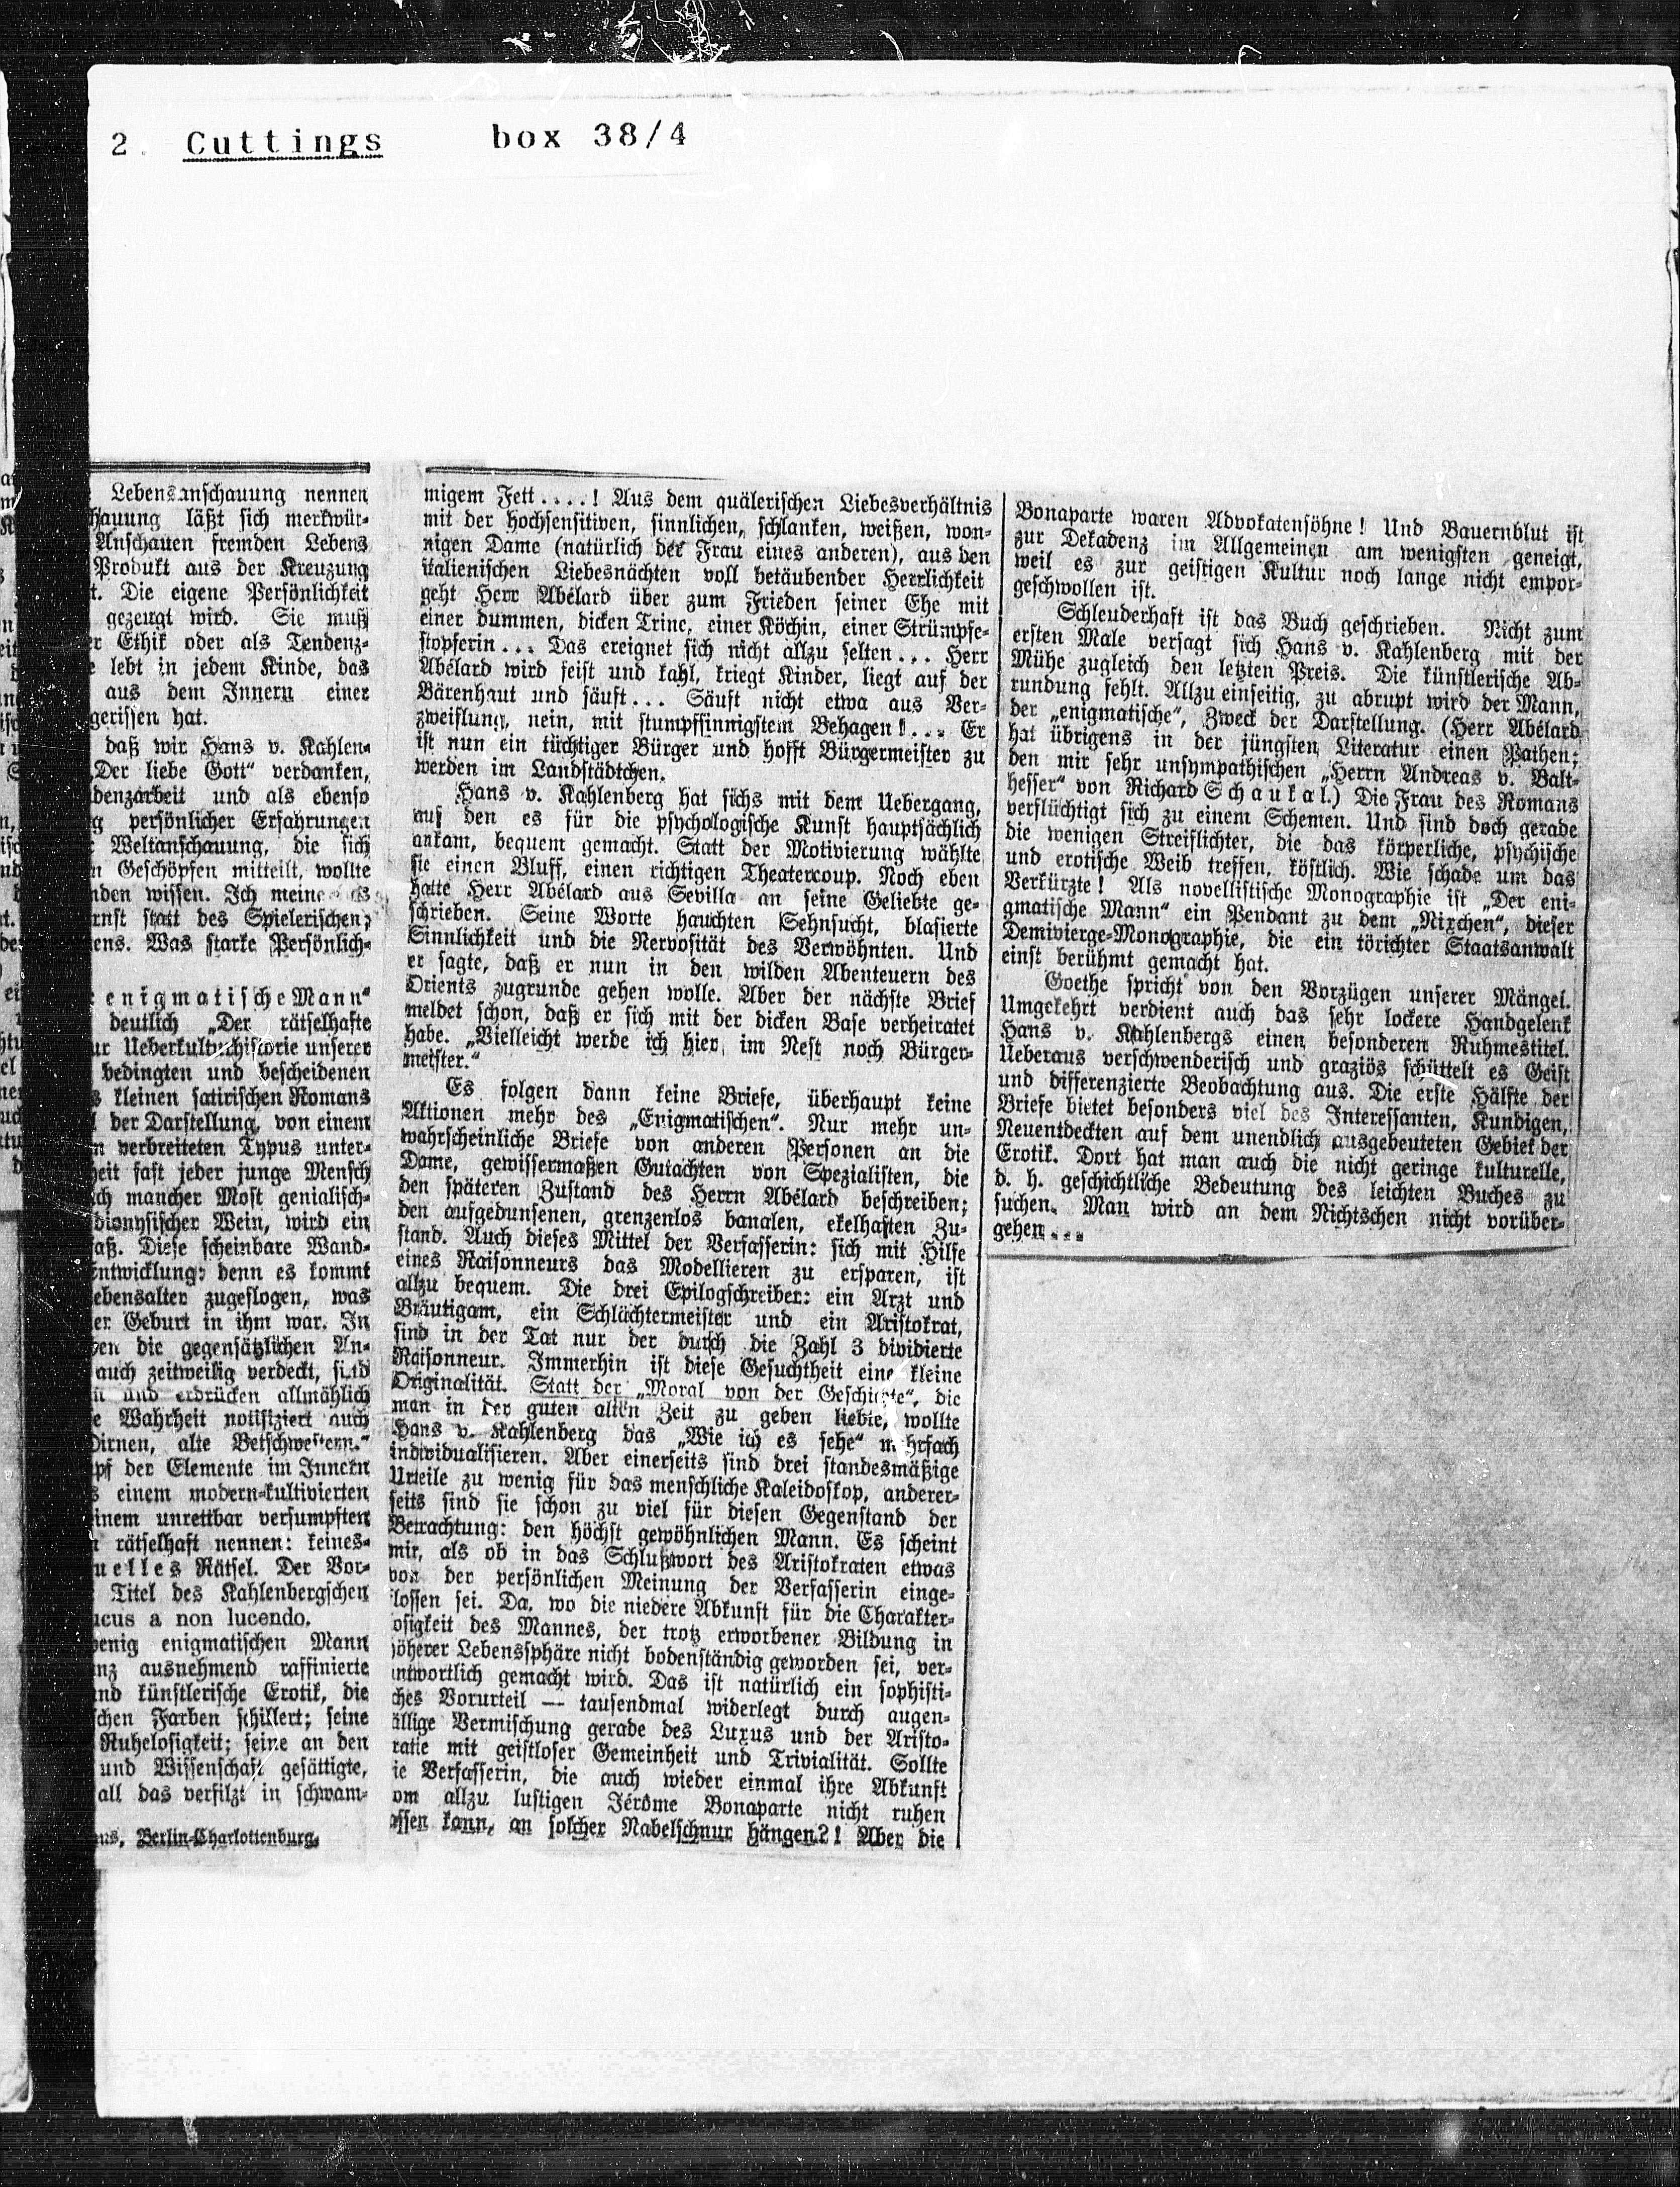 2. Cuttings box 38/4
Lebensanschauung nennen
hauung läßt sich merkwür-
Anschauen fremden Lebens
Produkt aus der Kreuzung
t. Die eigene Persönlichkeit
gezeugt wird. Sie muß
er Ethik oder als Tendenz-
e lebt in jedem Kinde, das
aus dem Innern einer
gerissen hat.
daß wir Hans v. Kahlen-
„Der liebe Gott“ verdanken,
denzarbeit und als ebenso
g persönlicher Erfahrungen
r Weltanschauung, die sich
n Geschöpfen mitteilt, wollte
nden wissen. Ich meine
rnst statt des Spielerischen;
ens. Was starke Persönlich-
enigmatische Mann“
deutlich „Der rätselhafte
ur Ueberkulturhistorie unserer
bedingten und bescheidenen
s kleinen satirischen Romans
l der Darstellung, von einem
n verbreiteten Typus unter-
heit fast jeder junge Mensch
ch mancher Most genialisch-
dionysischer Wein, wird ein
aß. Diese scheinbare Wand-
Entwicklung: denn es kommt
ebensalter zugeflogen, was
er Geburt in ihm war. In
en die gegensätzlichen An-
auch zeitweilig verdeckt, sind
n und erdrücken allmählich
e Wahrheit notifiziert auch
Dirnen, alte Betschwestern.“
pf der Elemente im Innern
s einem modern-kultivierten
inem unrettbar versumpften
n rätselhaft nennen: keines-
uelles Rätsel. Der Vor-
Titel des Kahlenbergschen
ucus a non lucendo.
wenig enigmatischen Mann
nz ausnehmend raffinierte
und künstlerische Erotik, die
schen Farben schillert; seine
Ruhelosigkeit; seine an den
und Wissenschaft gesättigte,
all das verfilzt in schwam-
us, Berlin-Charlottenburg.
migem Fett....! Aus dem quälerischen Liebesverhältnis
mit der hochsensitiven, sinnlichen, schlanken, weißen, won-
nigen Dame (natürlich der Frau eines anderen), aus den
italienischen Liebesnächten voll betäubender Herrlichkeit
geht Herr Abélard über zum Frieden seiner Ehe mit
einer dummen, dicken Trine, einer Köchin, einer Strümpfe-
stopferin... Das ereignet sich nicht allzu selten... Herr
Abélard wird feist und kahl, kriegt Kinder, liegt auf der
Bärenhaut und säuft... Säuft nicht etwa aus Ver-
zweiflung, nein, mit stumpfsinnigstem Behagen!... Er
ist nun ein tüchtiger Bürger und hofft Bürgermeister zu
werden im Landstädtchen.
Hans v. Kahlenberg hat sichs mit dem Uebergang,
auf den es für die psychologische Kunst hauptsächlich
ankam, bequem gemacht. Statt der Motivierung wählte
sie einen Bluff, einen richtigen Theatercoup. Noch eben
hatte Herr Abélard aus Sevilla an seine Geliebte ge-
schrieben. Seine Worte hauchten Sehnsucht, blasierte
Sinnlichkeit und die Nervosität des Verwöhnten. Und
er sagte, daß er nun in den wilden Abenteuern des
Orients zugrunde gehen wolle. Aber der nächste Brief
meldet schon, daß er sich mit der dicken Base verheiratet
habe. „Vielleicht werde ich hier im Nest noch Bürger-
meister.“
Es folgen dann keine Briefe, überhaupt keine
Aktionen mehr des „Enigmatischen“. Nur mehr un-
wahrscheinliche Briefe von anderen Personen an die
Dame, gewissermaßen Gutachten von Spezialisten, die
den späteren Zustand des Herrn Abélard beschreiben;
den aufgedunsenen, grenzenlos banalen, ekelhaften Zu-
stand. Auch dieses Mittel der Verfasserin: sich mit Hilfe
eines Raisonneurs das Modellieren zu ersparen, ist
allzu bequem. Die drei Epilogschreiber: ein Arzt und
Bräutigam, ein Schlächtermeister und ein Aristokrat,
sind in der Tat nur der durch die Zahl 3 dividierte
Raisonneur. Immerhin ist diese Gesuchtheit eine kleine
Originalität. Statt der „Moral von der Geschichte“, die
man in der guten alten Zeit zu geben liebte, wollte
Hans v. Kahlenberg das „Wie ich es sehe“ mehrfach
individualisieren. Aber einerseits sind drei standesmäßige
Urteile zu wenig für das menschliche Kaleidoskop, anderer-
seits sind sie schon zu viel für diesen Gegenstand der
Betrachtung: den höchst gewöhnlichen Mann. Es scheint
mir, als ob in das Schlußwort des Aristokraten etwas
von der persönlichen Meinung der Verfasserin einge-
flossen sei. Da, wo die niedere Abkunft für die Charakter-
osigkeit des Mannes, der trotz erworbener Bildung in
höherer Lebenssphäre nicht bodenständig geworden sei, ver-
antwortlich gemacht wird. Das ist natürlich ein sophisti-
ches Vorurteil — tausendmal widerlegt durch augen-
ällige Vermischung gerade des Luxus und der Aristo-
ratie mit geistloser Gemeinheit und Trivialität. Sollte
ie Verfasserin, die auch wieder einmal ihre Abkunft
om allzu lustigen Jérôme Bonaparte nicht ruhen
assen kann, an solcher Nabelschnur hängen?! Aber die
Bonaparte waren Advokatensöhne! Und Bauernblut ist
zur Dekadenz im Allgemeinen am wenigsten geneigt,
weil es zur geistigen Kultur noch lange nicht empor-
geschwollen ist.
Schleuderhaft ist das Buch geschrieben. Nicht zum
ersten Male versagt sich Hans v. Kahlenberg mit der
Mühe zugleich den letzten Preis. Die künstlerische Ab-
rundung fehlt. Allzu einseitig, zu abrupt wird der Mann,
der „enigmatische“, Zweck der Darstellung. (Herr Abélard
hat übrigens in der jüngsten Literatur einen Pathen;
den mir sehr unsympathischen „Herrn Andreas v. Balt-
hesser“ von Richard Schaukal.) Die Frau des Romans
verflüchtigt sich zu einem Schemen. Und sind doch gerade
die wenigen Streiflichter, die das körperliche, psychische
und erotische Weib treffen, köstlich. Wie schade um das
Verkürzte! Als novellistische Monographie ist „Der eni-
gmatische Mann“ ein Pendant zu dem „Nixchen“, dieser
Demivierge-Monographie, die ein törichter Staatsanwalt
einst berühmt gemacht hat.
Goethe spricht von den Vorzügen unserer Mängel.
Umgekehrt verdient auch das sehr lockere Handgelenk
Hans v. Kahlenbergs einen besonderen Ruhmestitel.
Ueberaus verschwenderisch und graziös schüttelt es Geist
und differenzierte Beobachtung aus. Die erste Hälfte der
Briefe bietet besonders viel des Interessanten, Kundigen,
Neuentdeckten auf dem unendlich ausgebeuteten Gebiet der
Erotik. Dort hat man auch die nicht geringe kulturelle,
d. h. geschichtliche Bedeutung des leichten Buches zu
suchen. Man wird an dem Nichtschen nicht vorüber-
gehen...